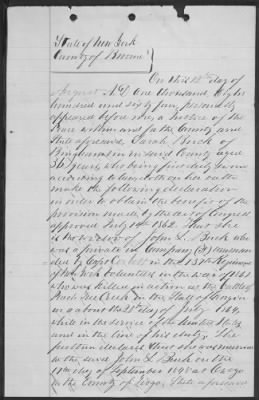 State of New York
County of Broome
On this 12th day of
August A.D. one thousand eight
hundred and sixty four, personally
appeared before me, a Justice of the
Peace within and for the County and
State aforesaid, Sarah Buck of
Binghamton in said County aged
36 years, who being first duly sworn
according to law, doth on her oath
make the following declaration
in order to obtain the benefit of the
provision made by the act of Congress
approved July 14th 1862. That she
is the widow of John L. Buck who
was a private in Company comman
ded by Capt in the 137th Regiment
of New York Volunteers in the war of 1861
who was killed in action at the battle of
Peach Tree Creek in the State of Georgia
on or about the 20th day of July 1864,
while in the service of the United States
and in the line of his duty. She
further declares that she was married
to the said John L Buck on the
11th day of September 1848 at Owego
in the County of Tioga, State aforesaid